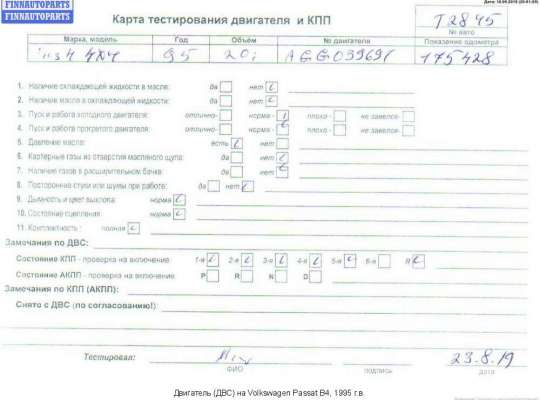 FINNAUTOPARTS
FINNAUTOPARTS
Карта тестирования двигателя и КПП
T2845
№ авто
Марка, модель Год Объем № двигателя Показание одометра
95 20i AGG039691 175428
1. Наличие охлаждающей жидкости в масле: да нет
2. Наличие масла в охлаждающей жидкости: да нет
3. Пуск и работа холодного двигателя: отлично- норма - плохо - не завелся-
4. Пуск и работа прогретого двигателя: отлично- норма - плохо - не завелся-
5. Давление масла: есть нет
6. Картерные газы из отверстия масляного щупа: да нет
7. Наличие газов в расширительном бачке: да нет
8. Посторонние стуки или шумы при работе: да нет
9. Дымность и цвет выхлопа: норма
10. Состояние сцепления: норма
11. Комплектность : полная
Замечания по ДВС:
Состояние КПП - проверка на включение: 1-я 2-я 3-я 4-я 5-я 6-я R
Состояние АКПП - проверка на включение: P R N D
Замечания по КПП (АКПП):
Снято с ДВС (по согласованию!):
Тестировал: 23.8.19
ФИО подпись дата
Двигатель (ДВС) на Volkswagen Passat B4, 1995 г.в.